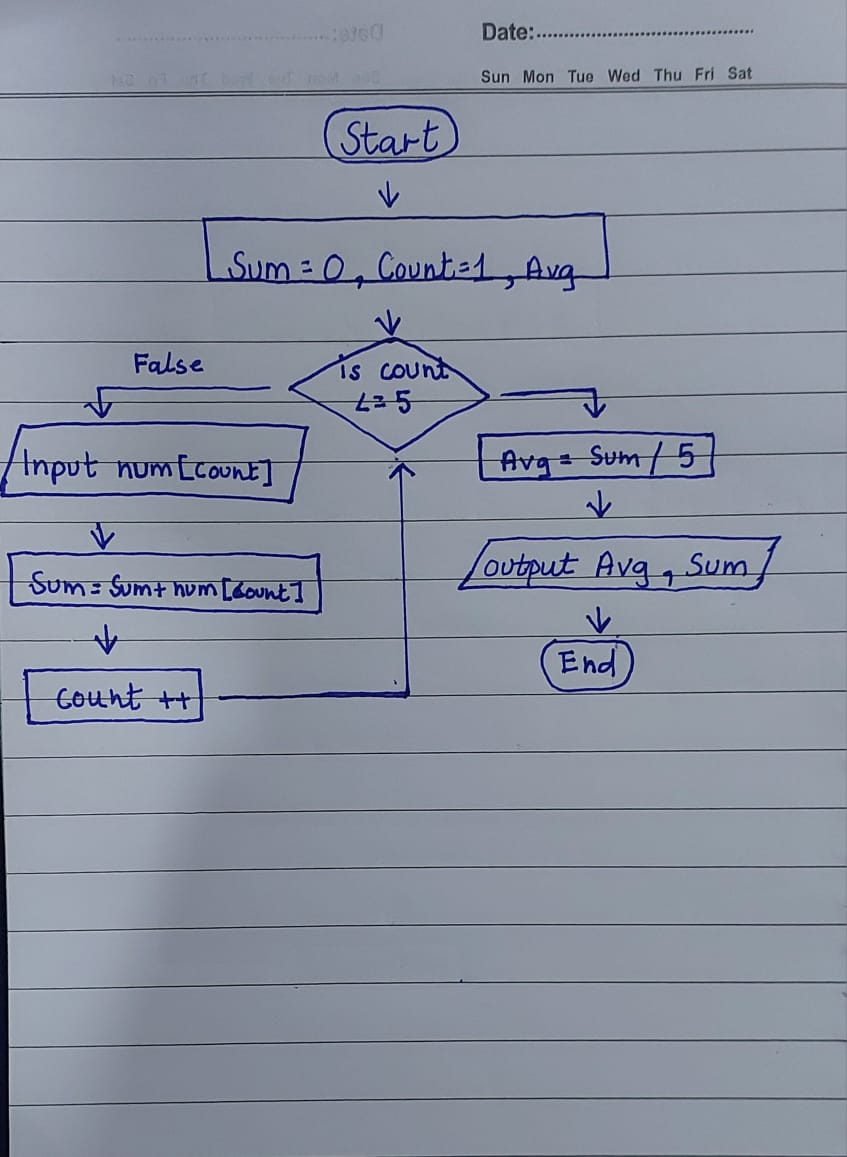 Date:
Sun Mon Tue Wed Thu Fri Sat
Start
Sum = 0, Count=1, Avg
False
is count
<= 5
Input num[count]
Avg = Sum / 5
Sum = Sum+ num[count]
output Avg, Sum
Count ++
End